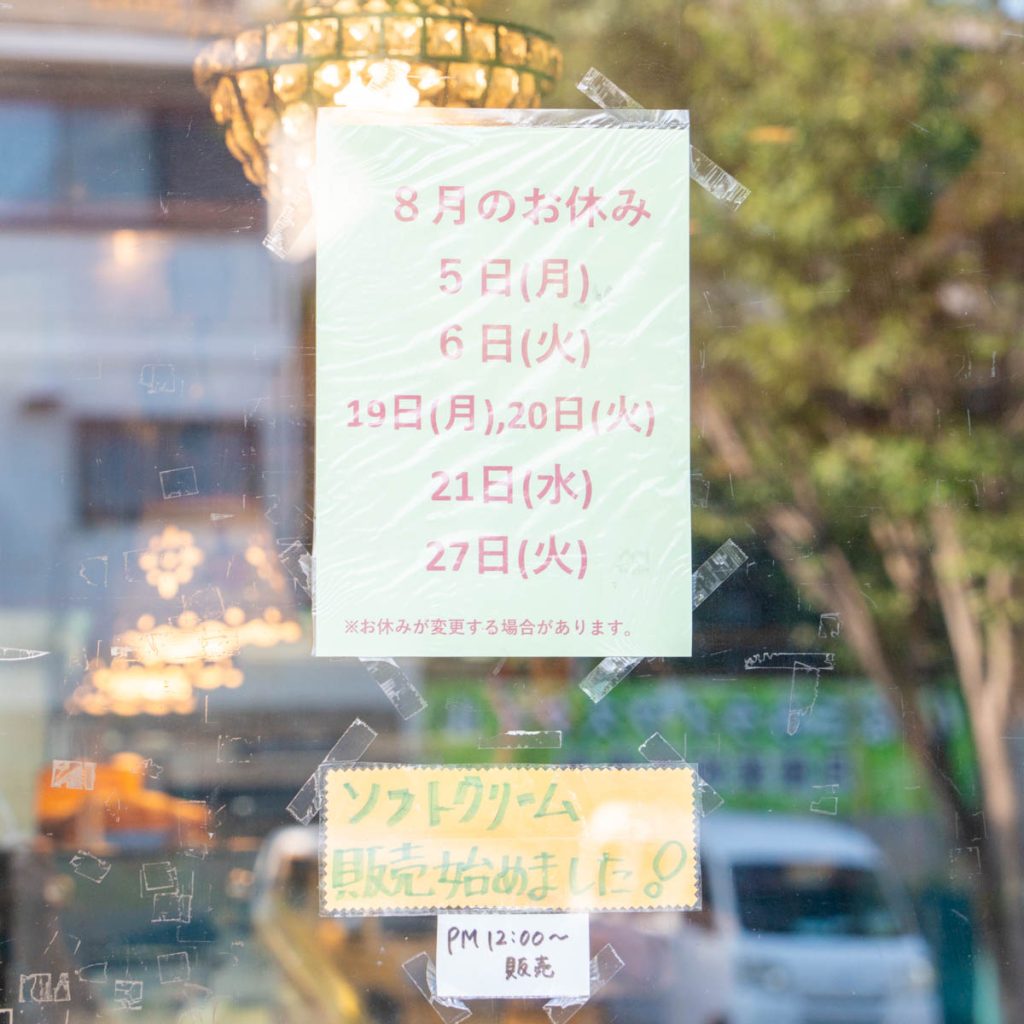 8月のお休み
5日(月)
6日(火)
19日(月),20日(火)
21日(水)
27日(火)
※お休みが変更する場合があります。
ソフトクリーム
販売始めました!
PM 12:00〜
販売